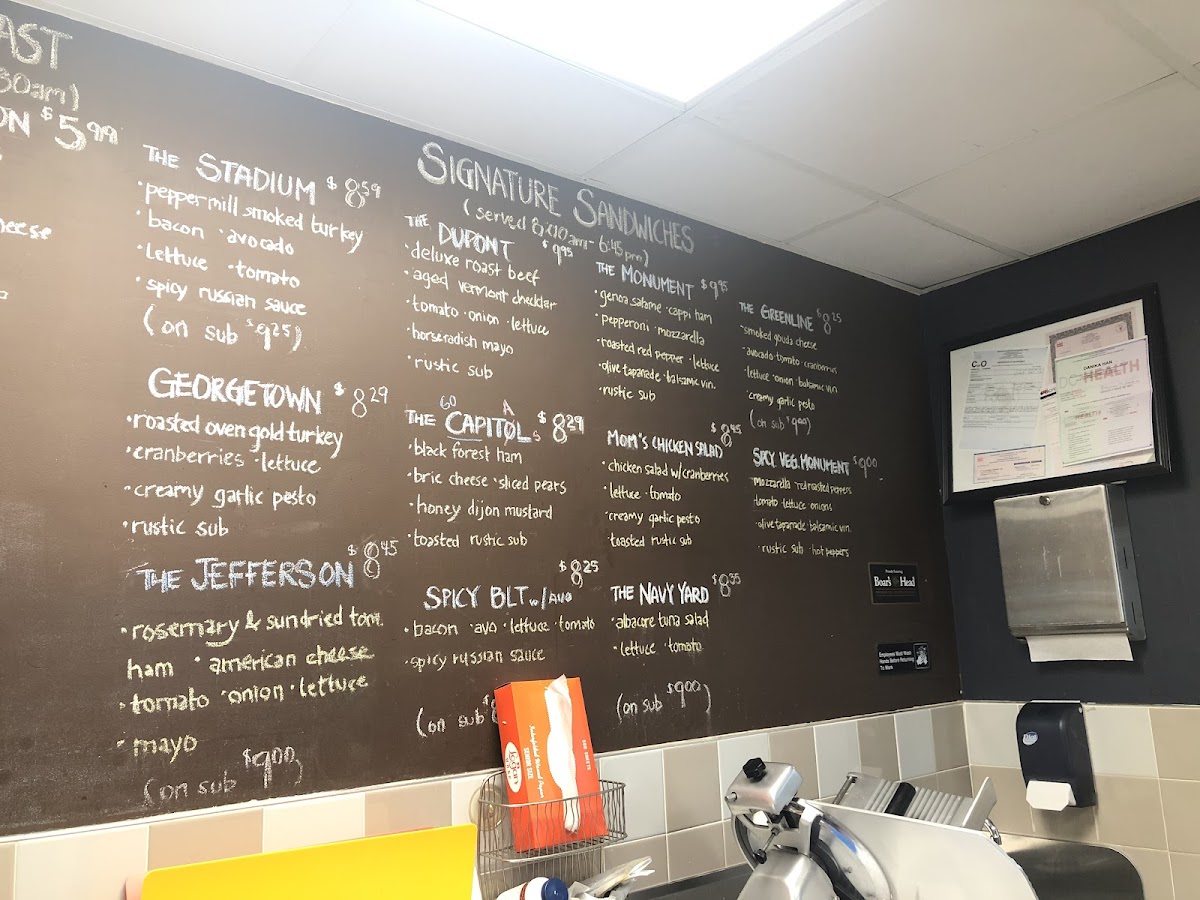 AST
30am)
ON $5.99
heese
THE STADIUM $8.59
·peppermill smoked turkey
·bacon ·avocado
·lettuce ·tomato
·spicy russian sauce
(on sub $9.25)
GEORGETOWN $8.29
·roasted oven gold turkey
·cranberries ·lettuce
·creamy garlic pesto
·rustic sub
THE JEFFERSON $8.45
·rosemary & sundried tom.
ham ·american cheese
·tomato ·onion ·lettuce
·mayo
(on sub $9.00)
SIGNATURE SANDWICHES
(served 8:00am-6:45pm)
THE DUPONT $9.95
·deluxe roast beef
·aged vermont cheddar
·tomato ·onion ·lettuce
·horseradish mayo
·rustic sub
GO
THE CAPITOLS $8.29
·black forest ham
·brie cheese ·sliced pears
·honey dijon mustard
·toasted rustic sub
$8.25
SPICY BLT w/AVO
·bacon ·avo ·lettuce ·tomato
·spicy russian sauce
(on sub $
THE MONUMENT $9.95
·genoa salame ·cappi ham
·pepperoni ·mozzarella
·roasted red pepper ·lettuce
·olive tapanade ·balsamic vin.
·rustic sub
$8.45
MOM'S CHICKEN SALAD
·chicken salad w/cranberries
·lettuce ·tomato
·creamy garlic pesto
·toasted rustic sub
THE NAVY YARD $8.35
·albacore tuna salad
·lettuce ·tomato
(on sub $9.00)
THE GREENLINE $8.25
·smoked gouda cheese
·avocado ·tomato ·cranberries
·lettuce ·onion ·balsamic vin.
·creamy garlic pesto
(on sub $9.00)
SPICY VEG. MONUMENT $9.00
mozzarella ·red roasted peppers
tomato ·lettuce ·onions
·olive tapanade ·balsamic vin.
·rustic sub ·hot peppers
Boar's Head
Employees Must Wash
Hands Before Returning
To Work
CofO
DANIKA HAN
DC HEALTH